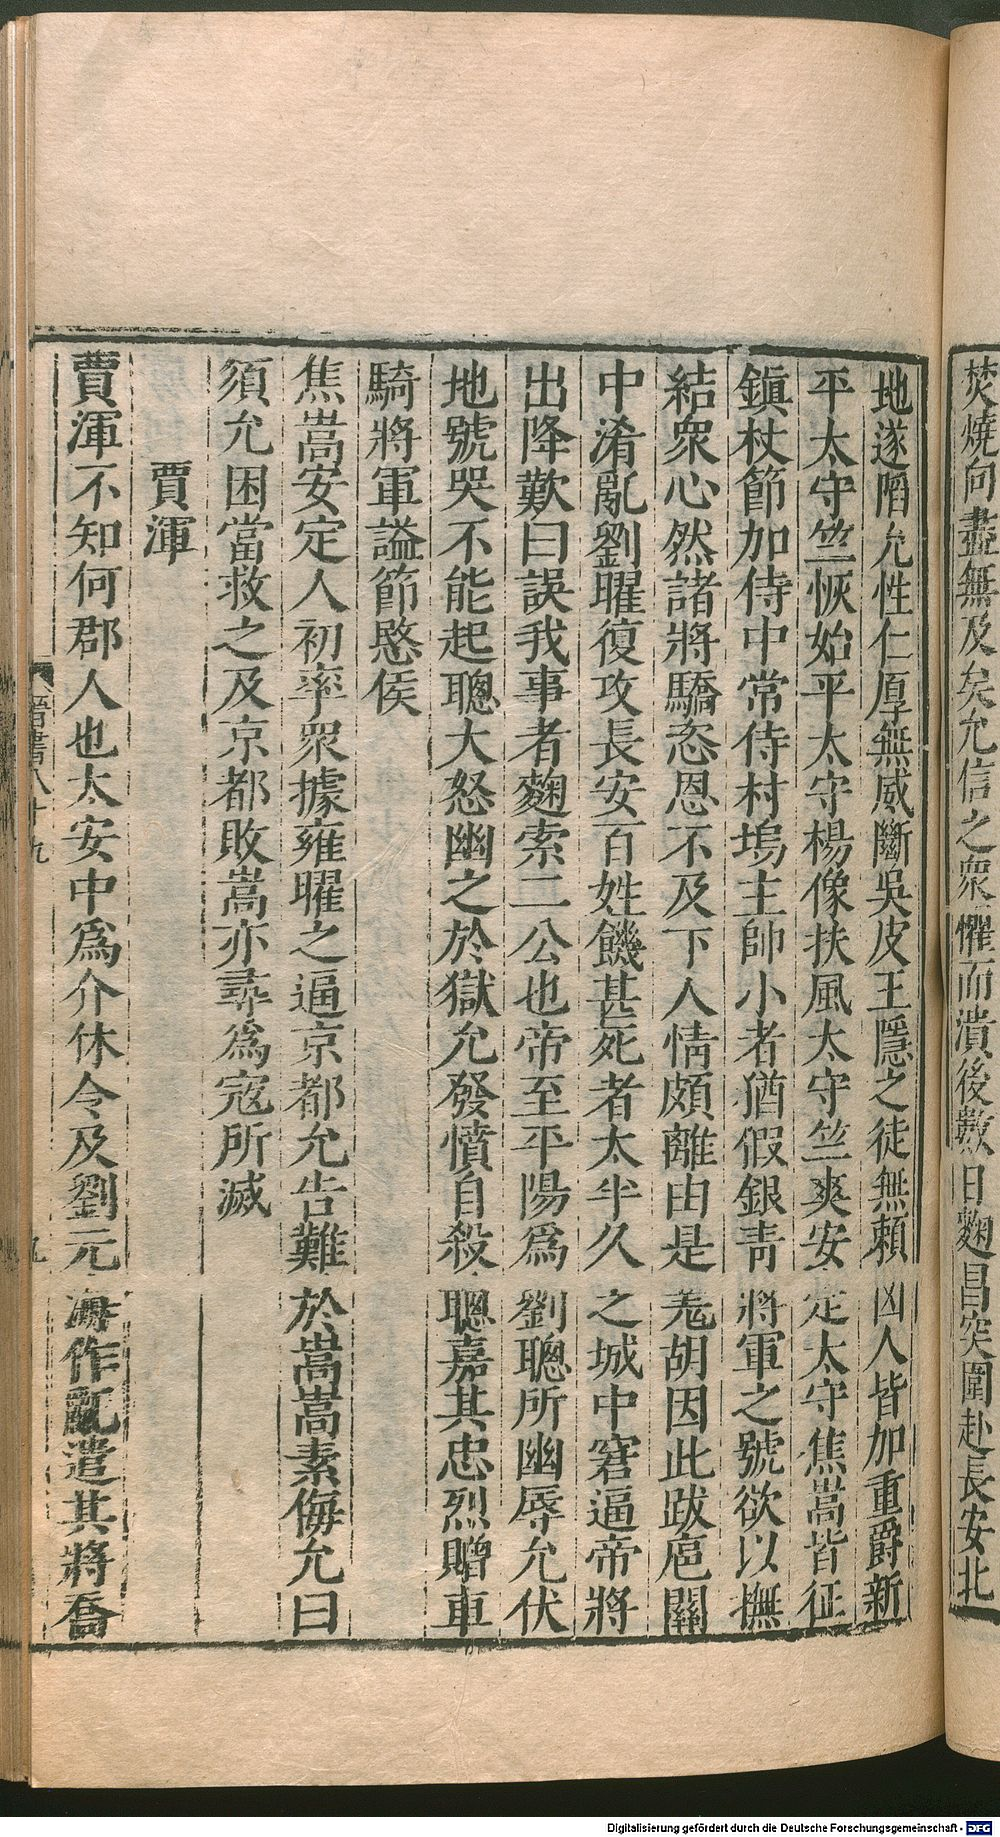 焚燒向盡無及矣允信之衆懼而潰後數日麴昌突圍赴長安北
地遂陷允性仁厚無威斷吳皮王隱之徒無賴凶人皆加重爵新
平太守竺恢始平太守楊像扶風太守竺爽安定太守焦嵩皆征
鎮杖節加侍中常侍村塢主帥小者猶假銀青將軍之號欲以撫
結衆心然諸將驕恣恩不及下人情頗離由是羗胡因此跋扈關
中淆亂劉曜復攻長安百姓饑甚死者太半久之城中窘逼帝將
出降歎曰誤我事者麴索二公也帝至平陽爲劉聰所幽辱允伏
地號哭不能起聰大怒幽之於獄允發憤自殺聰嘉其忠烈贈車
騎將軍謚節愍侯
焦嵩安定人初率衆據雍曜之逼京都允告難於嵩嵩素侮允曰
須允困當救之及京都敗嵩亦尋爲寇所滅
賈渾
賈渾不知何郡人也太安中爲介休令及劉元海作亂遣其將喬
晉書八十九
九
Digitalisierung gefördert durch die Deutsche Forschungsgemeinschaft - DFG